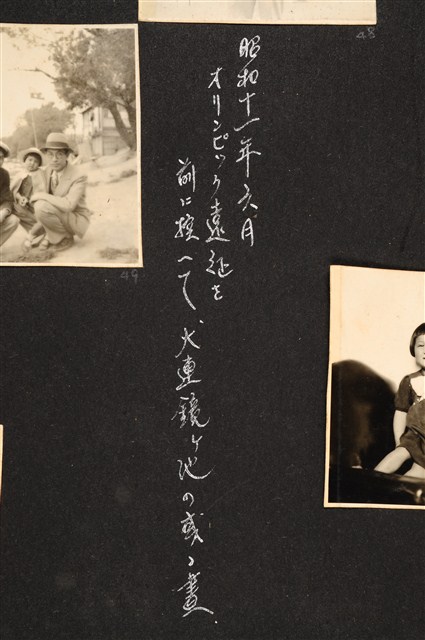 昭和十一年六月
オリンピック遠征を
前に控へて、大連鏡ヶ池の或る晝、
48
49